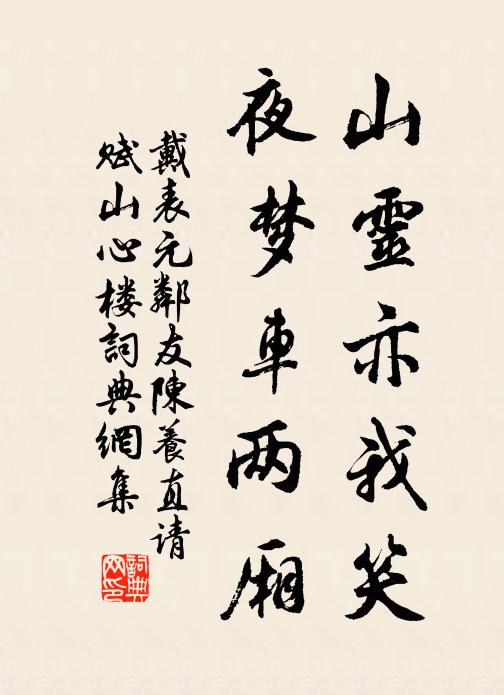 山靈亦我笑
夜梦車两厢
戴表元鄰友陳養直请
赋山心楼詞典網集
詞典网印